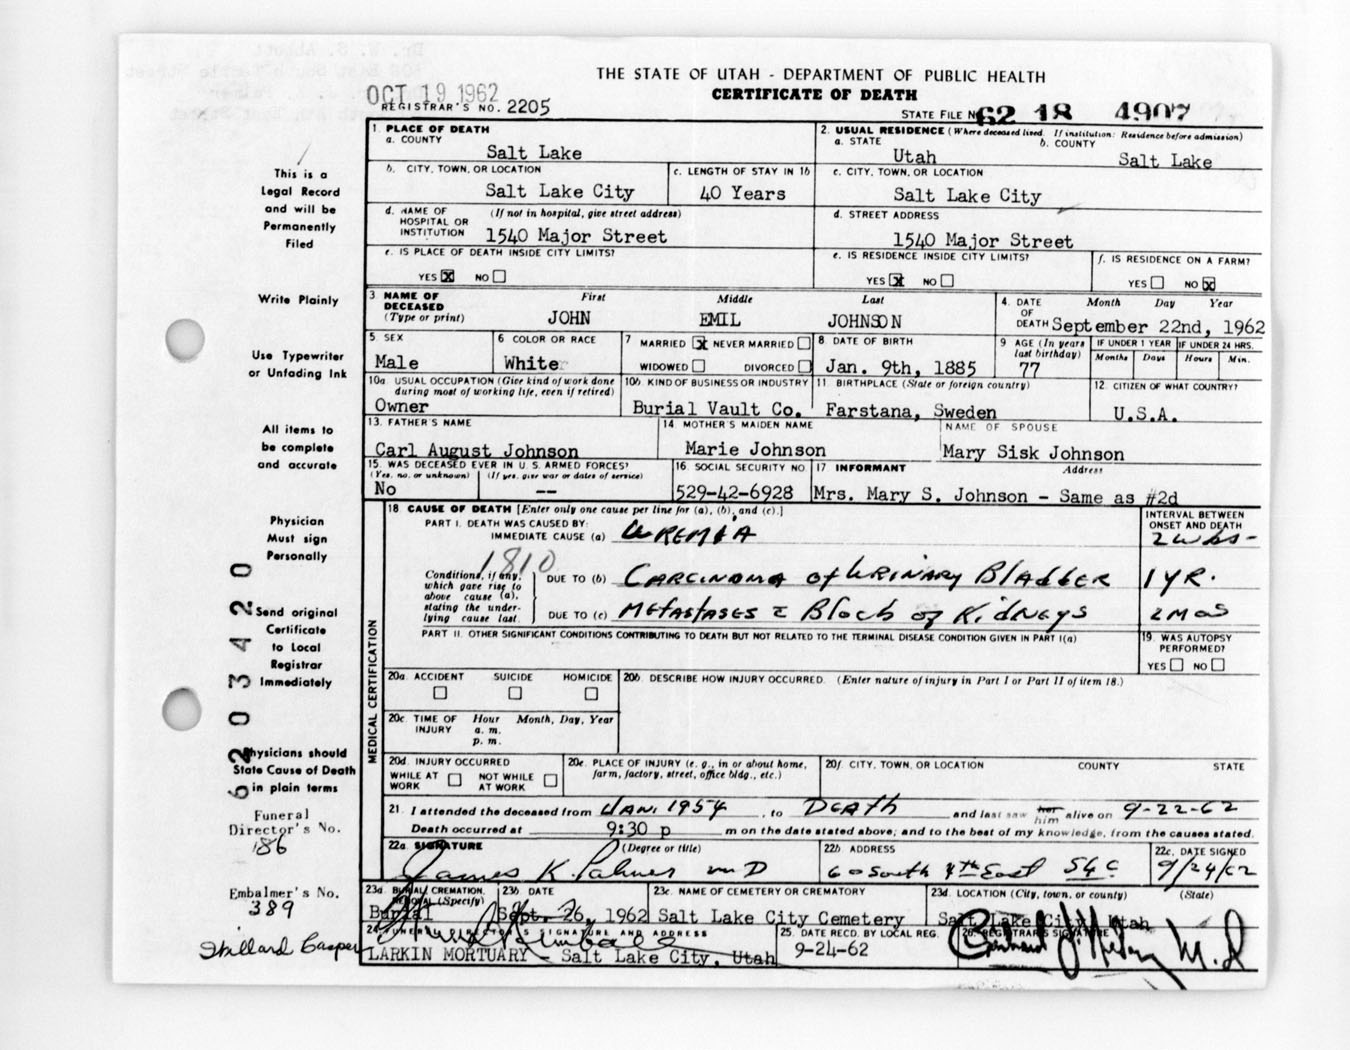 THE STATE OF UTAH - DEPARTMENT OF PUBLIC HEALTH
CERTIFICATE OF DEATH
OCT 19 1962
REGISTRAR'S NO. 2205
STATE FILE NO. 62 18 4907
1. PLACE OF DEATH
a. COUNTY
Salt Lake
2. USUAL RESIDENCE (Where deceased lived. If institution: Residence before admission)
a. STATE b. COUNTY
Utah Salt Lake
b. CITY, TOWN, OR LOCATION
Salt Lake City
c. LENGTH OF STAY IN 1b
40 Years
c. CITY, TOWN, OR LOCATION
Salt Lake City
d. NAME OF HOSPITAL OR INSTITUTION (If not in hospital, give street address)
1540 Major Street
d. STREET ADDRESS
1540 Major Street
e. IS PLACE OF DEATH INSIDE CITY LIMITS?
YES X NO
e. IS RESIDENCE INSIDE CITY LIMITS?
YES X NO
f. IS RESIDENCE ON A FARM?
YES NO X
3 NAME OF DECEASED (Type or print)
First Middle Last
JOHN EMIL JOHNSON
4. DATE OF DEATH Month Day Year
September 22nd, 1962
5. SEX
Male
6 COLOR OR RACE
White
7 MARRIED X NEVER MARRIED
WIDOWED DIVORCED
8. DATE OF BIRTH
Jan. 9th, 1885
9 AGE (In years last birthday)
77
IF UNDER 1 YEAR IF UNDER 24 HRS.
Months Days Hours Min.
10a. USUAL OCCUPATION (Give kind of work done during most of working life, even if retired)
Owner
10b KIND OF BUSINESS OR INDUSTRY
Burial Vault Co.
11. BIRTHPLACE (State or foreign country)
Farstana, Sweden
12. CITIZEN OF WHAT COUNTRY?
U.S.A.
13. FATHER'S NAME
Carl August Johnson
14 MOTHER'S MAIDEN NAME
Marie Johnson
NAME OF SPOUSE
Mary Sisk Johnson
15. WAS DECEASED EVER IN U. S. ARMED FORCES?
(Yes, no, or unknown) (If yes, give war or dates of service)
No --
16. SOCIAL SECURITY NO
529-42-6928
17 INFORMANT Address
Mrs. Mary S. Johnson - Same as #2d
18 CAUSE OF DEATH [Enter only one cause per line for (a), (b), and (c).]
INTERVAL BETWEEN ONSET AND DEATH
PART I. DEATH WAS CAUSED BY:
IMMEDIATE CAUSE (a) UREMIA 2 wks-
1810
Conditions, if any, which gave rise to above cause (a), stating the underlying cause last.
DUE TO (b) CARCINOMA of URINARY BLADDER 1 YR.
DUE TO (c) METASTASES c Block of Kidneys 2 mos
PART II. OTHER SIGNIFICANT CONDITIONS CONTRIBUTING TO DEATH BUT NOT RELATED TO THE TERMINAL DISEASE CONDITION GIVEN IN PART I(a)
19. WAS AUTOPSY PERFORMED?
YES NO
20a. ACCIDENT SUICIDE HOMICIDE
20b DESCRIBE HOW INJURY OCCURRED. (Enter nature of injury in Part I or Part II of item 18.)
20c. TIME OF INJURY Hour Month, Day, Year
a. m.
p. m.
20d. INJURY OCCURRED
WHILE AT WORK NOT WHILE AT WORK
20e. PLACE OF INJURY (e. g., in or about home, farm, factory, street, office bldg., etc.)
20f. CITY, TOWN, OR LOCATION COUNTY STATE
21. I attended the deceased from JAN. 1954, to DEATH and last saw her him alive on 9-22-62
Death occurred at 9:30 p m on the date stated above; and to the best of my knowledge, from the causes stated.
22a. SIGNATURE (Degree or title)
James K. Palmer M D
22b. ADDRESS
60 South 4th East SLC
22c. DATE SIGNED
9/24/62
23a. BURIAL, CREMATION, REMOVAL (Specify)
Burial
23b DATE
Sept. 26, 1962
23c. NAME OF CEMETERY OR CREMATORY
Salt Lake City Cemetery
23d. LOCATION (City, town, or county) (State)
Salt Lake City, Utah
24. FUNERAL DIRECTOR'S SIGNATURE AND ADDRESS
LARKIN MORTUARY - Salt Lake City, Utah
25. DATE RECD. BY LOCAL REG.
9-24-62
26. REGISTRAR'S SIGNATURE
M.D
MEDICAL CERTIFICATION
This is a
Legal Record
and will be
Permanently
Filed
Write Plainly
Use Typewriter
or Unfading Ink
All items to
be complete
and accurate
Physician
Must sign
Personally
Send original
Certificate
to Local
Registrar
Immediately
Physicians should
State Cause of Death
in plain terms
Funeral
Director's No.
186
Embalmer's No.
389
Willard Casper
6203420